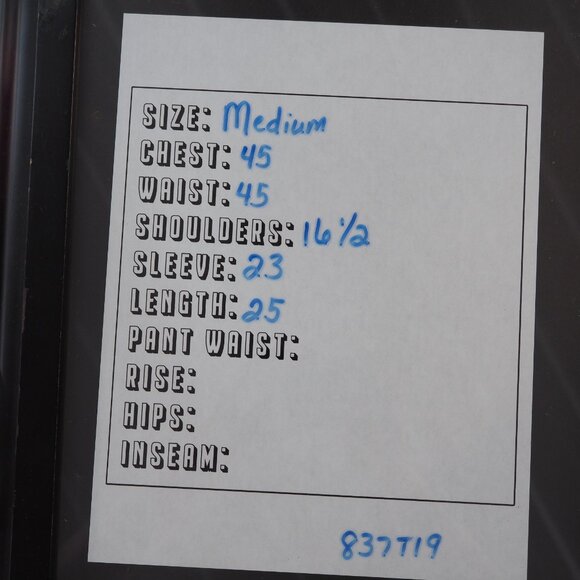 SIZE: Medium
CHEST: 45
WAIST: 45
SHOULDERS: 16 1/2
SLEEVE: 23
LENGTH: 25
PANT WAIST:
RISE:
HIPS:
INSEAM:
837T19